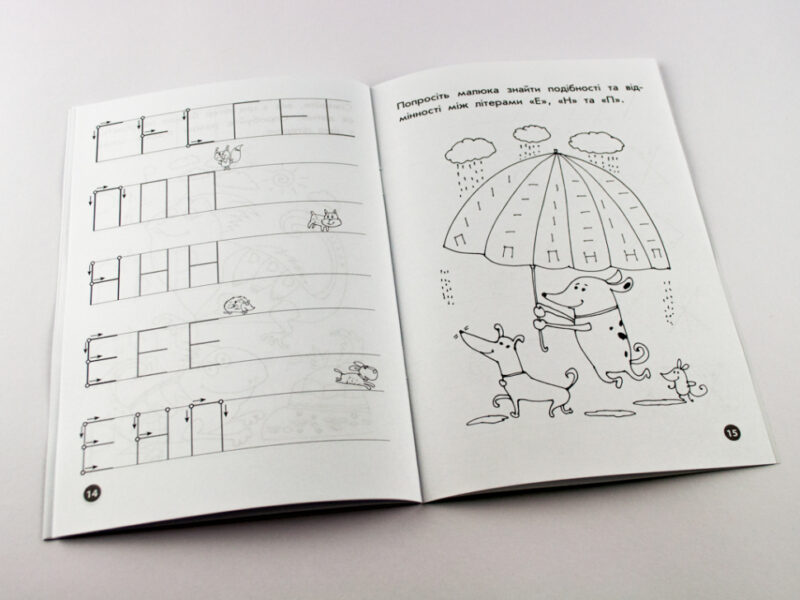 П П П
Н Н Н
Е Е
Е Н П
14
Попросіть малюка знайти подібності та від-
мінності між літерами «Е», «Н» та «П».
15